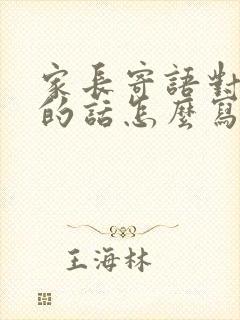 家長寄語對
的話怎麼寫
王海林